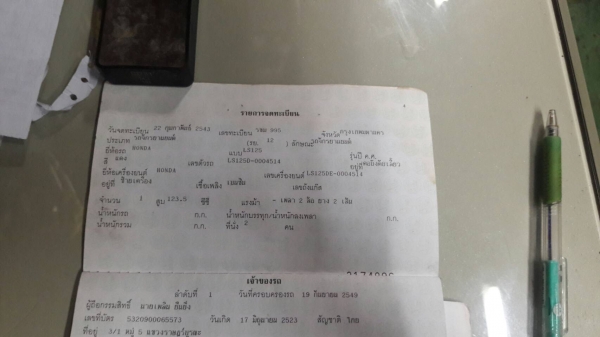 รายการจดทะเบียน
วันจดทะเบียน 22 กุมภาพันธ์ 2543 เลขทะเบียน 905 จังหวัด กรุงเทพมหานคร
ประเภท รถจักรยานยนต์ (รย. 12 ) ลักษณะ รถจักรยานยนต์
ยี่ห้อรถ HONDA แบบ LS125 รุ่นปี ค.ศ.
สี แดง เลขตัวรถ LS125D-0004514 อยู่ที่
ยี่ห้อเครื่องยนต์ HONDA เลขเครื่องยนต์ LS125DE-0004514
อยู่ที่ ข้างเครื่อง เชื้อเพลิง เบนซิน เลขถังแก๊ส
จำนวน 1 สูบ 123.5 ซีซี แรงม้า - เพลา 2 ล้อ ยาง 2 เส้น
น้ำหนักรถ ก.ก. น้ำหนักบรรทุก/น้ำหนักลงเพลา ก.ก.
น้ำหนักรวม ก.ก. ที่นั่ง 2 คน
เจ้าของรถ
ลำดับที่ 1 วันที่ครอบครองรถ 19 กันยายน 2549
ผู้ถือกรรมสิทธิ์
เลขที่บัตร 5120900065573 วันเกิด 17 มิถุนายน 2523 สัญชาติ ไทย
ที่อยู่ 3/1 หมู่ 5